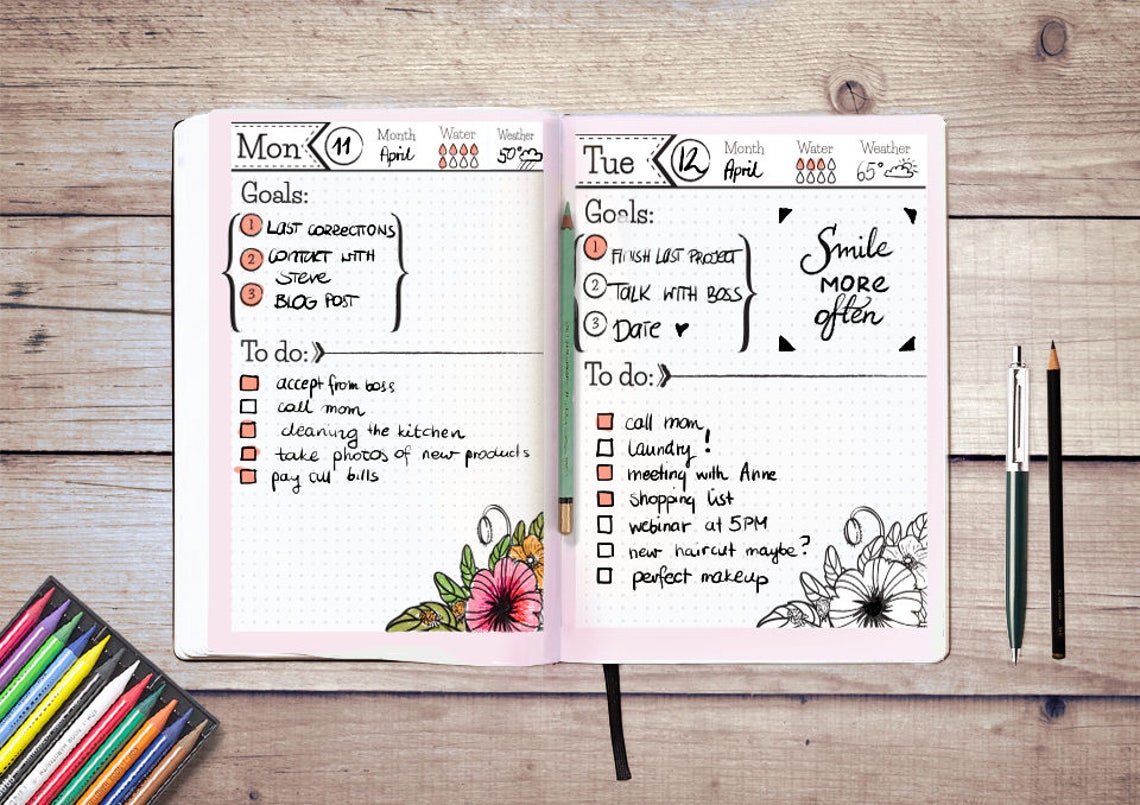 Mon 11 Month April Water Weather 50°
Goals:
1 LAST CORRECTIONS
2 CONTACT WITH
STEVE
3 BLOG POST
To do:
accept from boss
call mom
cleaning the kitchen
take photos of new products
pay all bills
Tue 12 Month April Water Weather 65°
Goals:
1 FINISH LAST PROJECT
2 TALK WITH BOSS
3 DATE ♥
Smile
MORE
often
To do:
call mom
Laundry!
meeting with Anne
Shopping list
webinar at 5PM
new haircut maybe?
perfect makeup